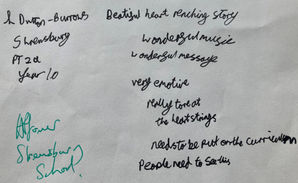 L Dutton-Burrows
Shrewsbury
PT2d
Year 10
Beatiful heart renching story
wonderful music
wonderful message
very emotive
really tore at
the heart strings
needs to be put on the curriculum
People need to see this
Shrewsbury
School.